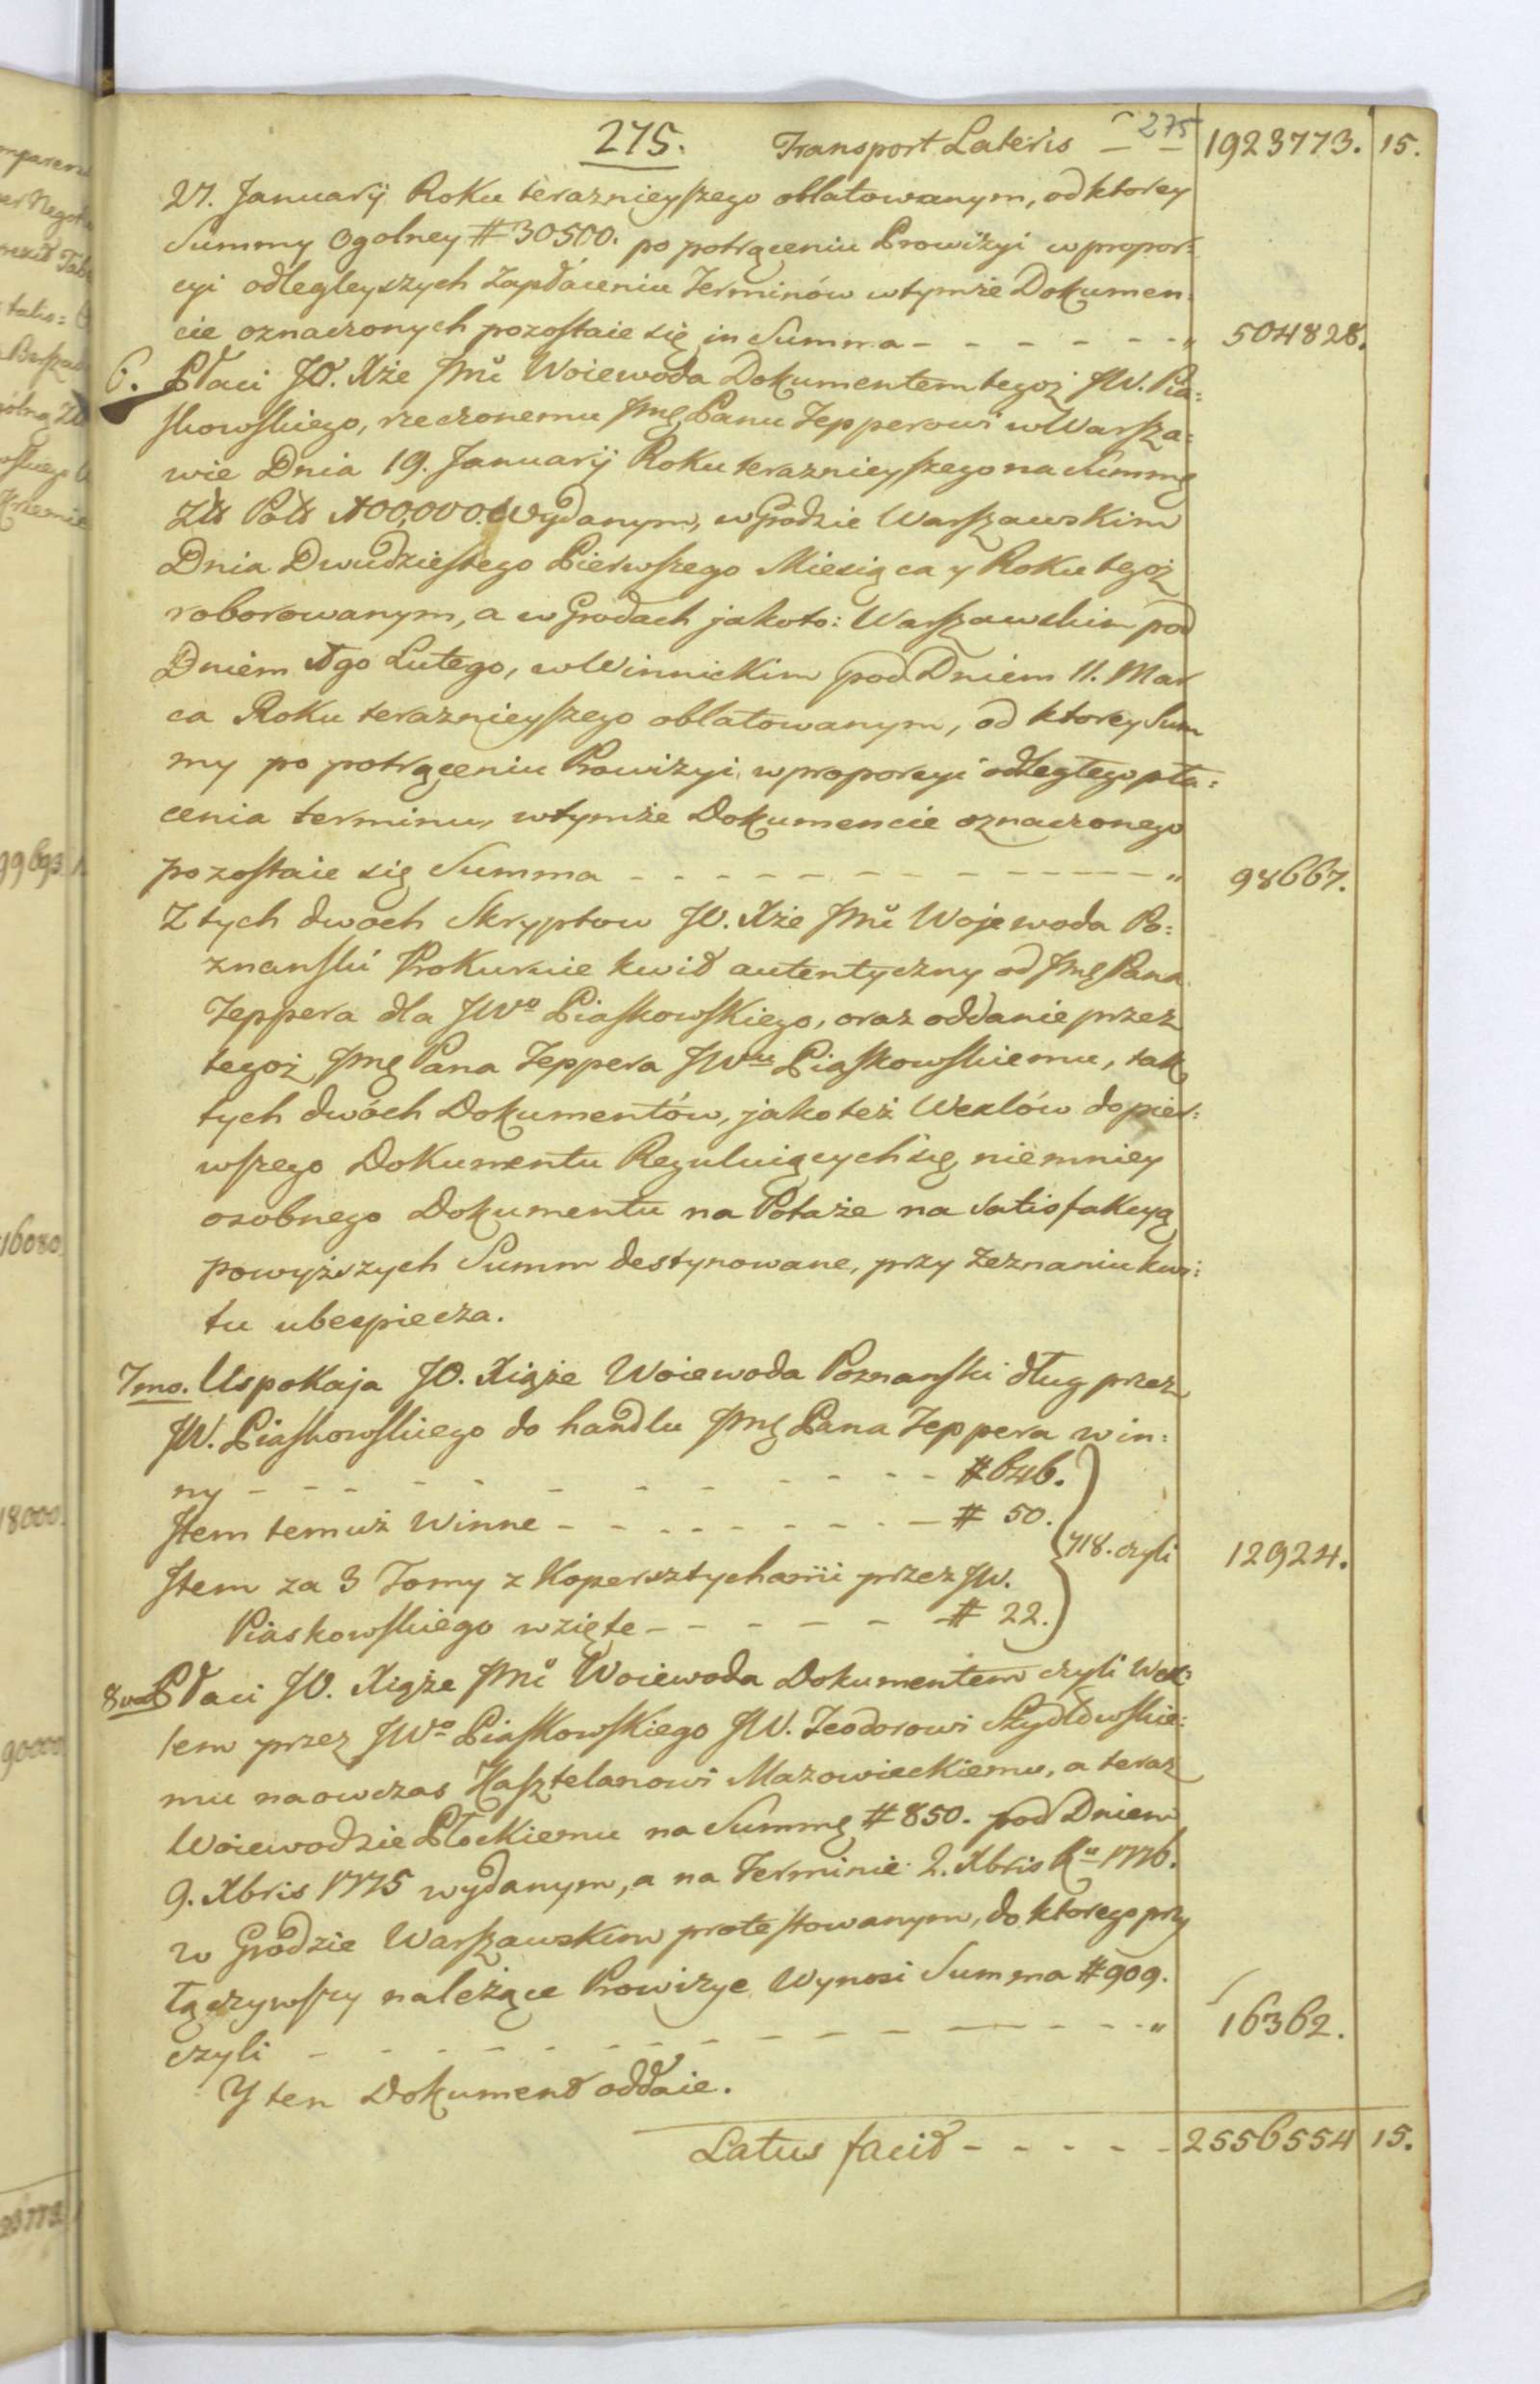 275. Transport Lateris — 275 — 1923773. 15.
27. Januarij Roku teraznieyszego oblatowanym, od ktorey
Summy Ogolney # 30500. po potrąceniu Prowizyi w propor:
cyi odlegleyszych zapłaceniu Terminów w tymże Dokumen:
cie oznaczonych pozostaie się in Summa - - - - - - " 504828.
6. Płaci JO. Xże Jmć Woiewoda Dokumentem tegoż JW. Pia:
skowskiego, rzeczonemu Jmę Panu Tepperowi w Warsza:
wie Dnia 19. Januarij Roku teraznieyszego na Summę
Złt Polt 100,000. Wydanym, w Grodzie Warszawskim
Dnia Dwudziestego Pierwszego Miesiąca y Roku tegoż
roborowanym, a w Grodach jakoto: Warszawskim pod
Dniem 1go Lutego, w Winnickim pod Dniem 11. Mar
ca Roku teraznieyszego oblatowanym, od ktorey Sum
my po potrąceniu Prowizyi w proporcyi odległego pła:
cenia terminu, w tymże Dokumencie oznaczonego
pozostaie się Summa - - - - - - - - - - - - " 98667.
Z tych dwoch Skryptow JO. Xże Jmć Wojewoda Po:
znanski Prokuruie kwit autentyczny od Jmę Pana
Teppera dla JWo Piaskowskiego, oraz oddanie przez
tegoż Jmę Pana Teppera JWu Piaskowskiemu, tak
tych dwóch Dokumentów, jako też Wexlów do pier:
wszego Dokumentu Reguluiących się, niemniey
osobnego Dokumentu na Potaże na satisfakcyą
powyższych Summ destynowane, przy zeznaniu kwi:
tu ubespiecza.
7mo. Uspokaja JO. Xiąże Woiewoda Poznanski dług przez
JW. Piaskowskiego do handlu Jmę Pana Teppera win:
ny - - - - - - - - - - - - # 646.
Item temuż Winne - - - - - - - - # 50.
718. czyli 12924.
Item za 3 Tomy z Kopersztychami przez JW.
Piaskowskiego wzięte - - - - - - # 22.
8vo Płaci JO. Xiąże Jmć Woiewoda Dokumentem czyli Wex:
lem przez JWo Piaskowskiego JW. Teodorowi Szydłowskie:
mu naowczas Kasztelanowi Mazowieckiemu, a teraz
Woiewodzie Płockiemu na Summę # 850. pod Dniem
9. Xbris 1775 wydanym, a na Terminie 2. Xbris Ru 1776.
w Grodzie Warszawskim protestowanym, do ktorego przy
łączywszy należące Prowizye Wynosi Summa # 909.
czyli - - - - - - - - - - - - - " 16362.
Y ten Dokument oddaie.
Latus facit - - - - - 2556554 15.